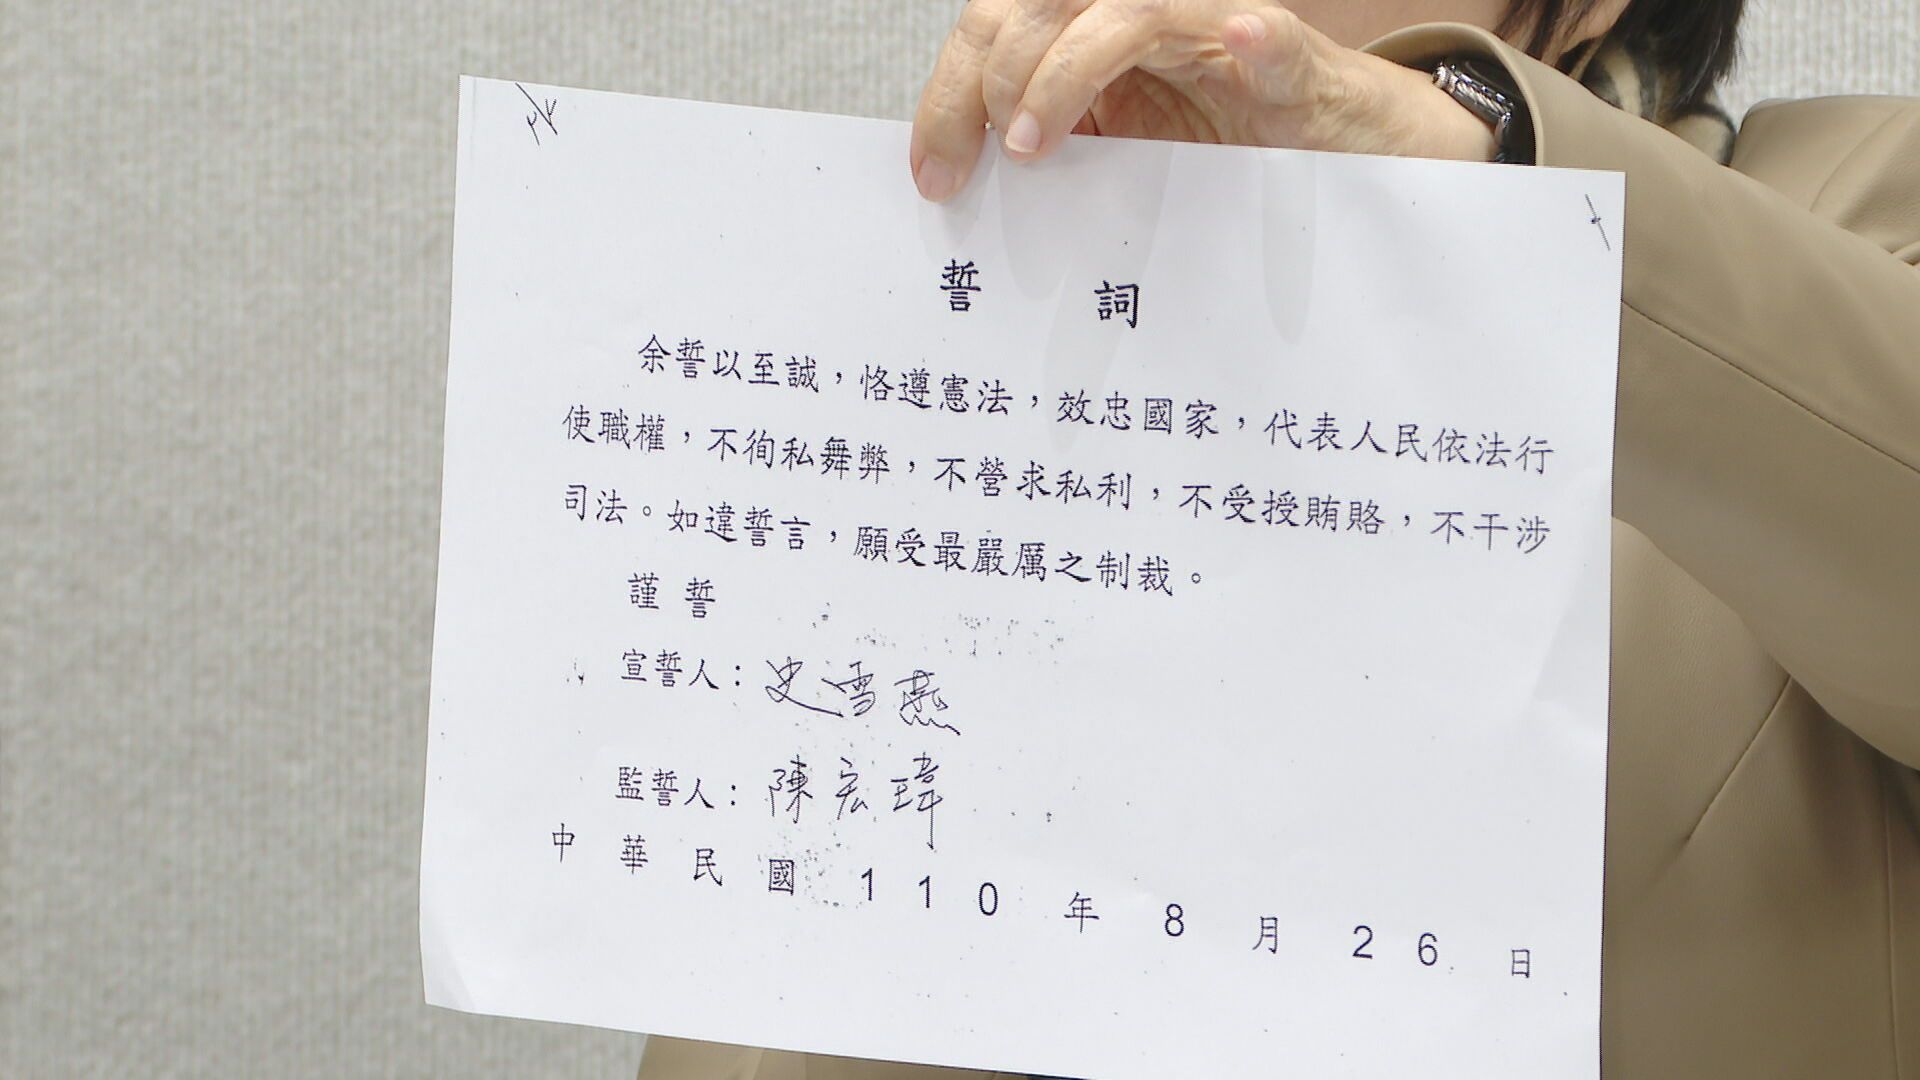 誓 詞
余誓以至誠，恪遵憲法，效忠國家，代表人民依法行
使職權，不徇私舞弊，不營求私利，不受授賄賂，不干涉
司法。如違誓言，願受最嚴厲之制裁。
謹 誓
宣誓人：史雪燕
監誓人：陳宏瑋
中 華 民 國 110 年 8 月 26 日